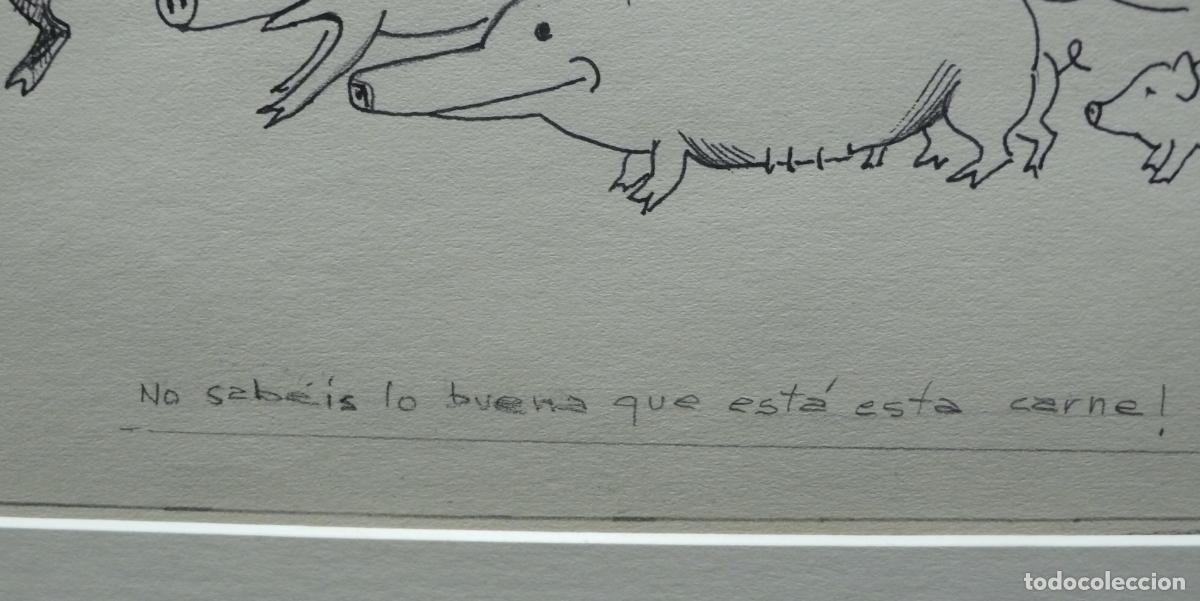 No sabéis lo buena que está esta carne!
todocoleccion